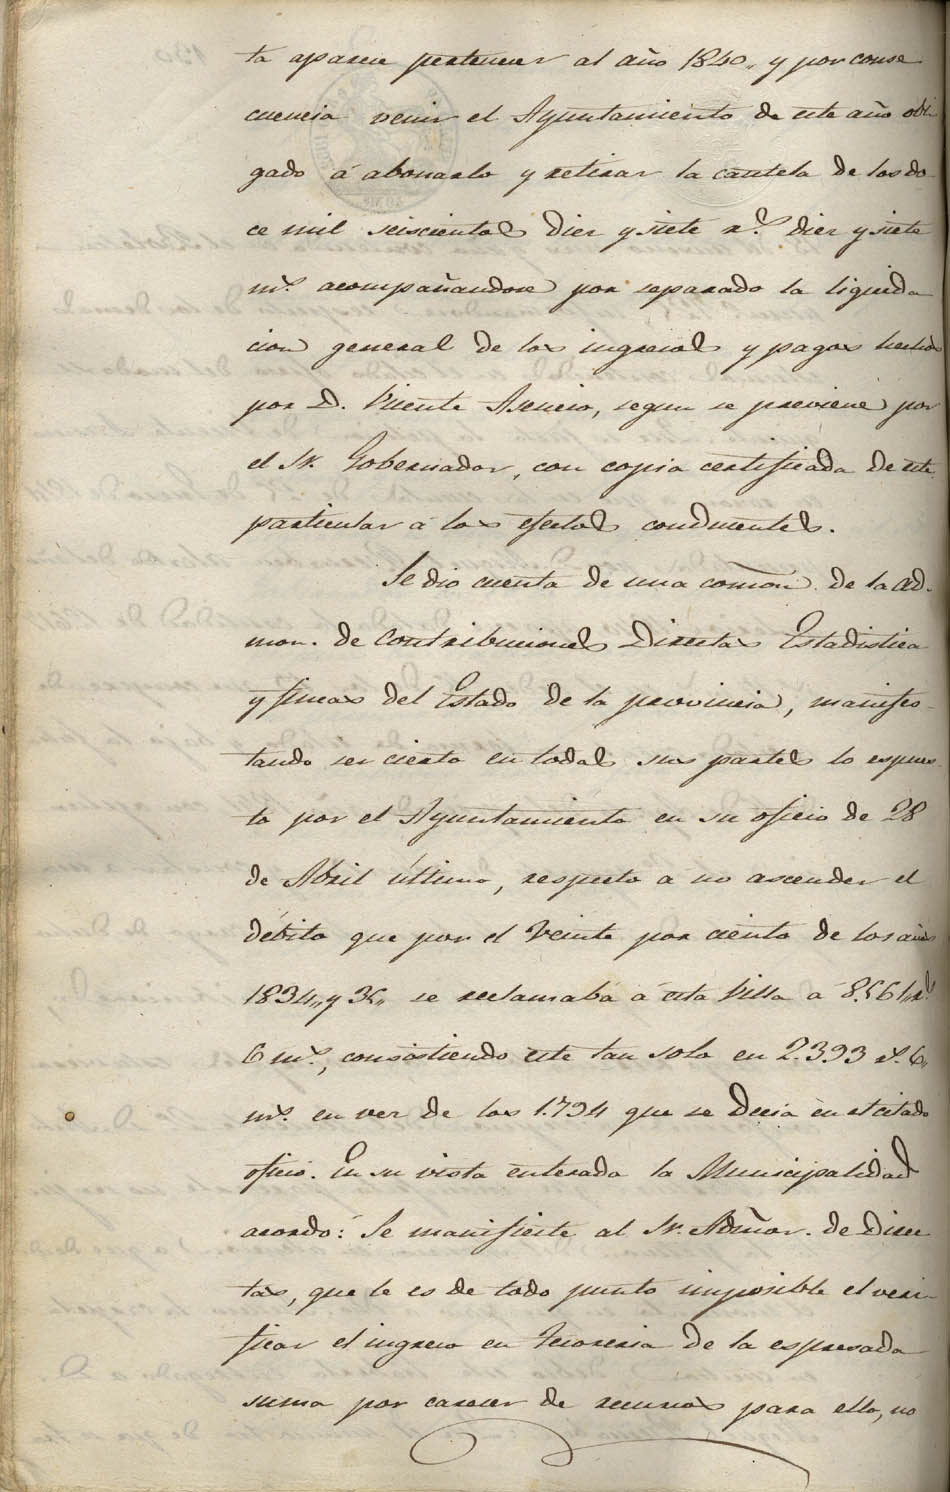 ta aparece pertenecer al año 1840,, y por conse
cuencia venir el Ayuntamiento de este año obli
gado á abonarlo y retirar la cautela de los do-
ce mil seiscientos diez y siete rs. diez y siete
ms. acompañandose por separado la liquida
cion general de los ingresos y pagos hechos
por D. Vicente Asencio, segun se previene por
el Sr. Gobernador, con copia certificada de este
particular á los efectos conducentes.
Se dio cuenta de una comon. de la Ad-
mon. de Contribuciones Directas Estadistica
y fincas del Estado de la provincia, manifes-
tando ser cierto en todas sus partes lo espues-
to por el Ayuntamiento en su oficio de 28
de Abril último, respecto a no ascender el
débito que por el Veinte por ciento de los años
1834,, y 35,, se reclamaba á esta Villa a 8.561 rs.
6 ms., consistiendo este tan solo en 2.393 rs. 6,,
ms. en vez de los 1.794 que se decia en el citado
oficio. En su vista enterada la Municipalidad
acordó: Se manifieste al Sr. Admor. de Direc
tas, que le es de todo punto imposible el veri-
ficar el ingreso en Tesoreria de la espresada
suma por carecer de recursos para ello, no